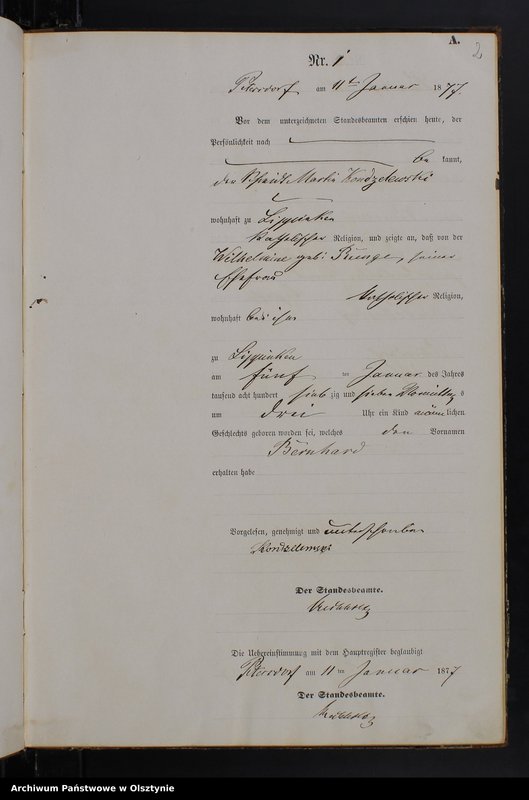 A.
2
Nr. 1
Petersdorf am 11ten Januar 1877.
Vor dem unterzeichneten Standesbeamten erschien heute, der
Persönlichkeit nach
be kannt,
der Martin
wohnhaft zu Lippinken
katholischer Religion, und zeigte an, daß von der
Wilhelmine geb: Runge, seiner
Ehefrau
katholischer Religion,
wohnhaft bei ihm
zu Lippinken
am fünf ten Januar des Jahres
tausend acht hundert sieb zig und sieben Vormittags
um drei Uhr ein Kind männlichen
Geschlechts geboren worden sei, welches den Vornamen
Bernhard
erhalten habe
Vorgelesen, genehmigt und unterschrieben
Der Standesbeamte.
Die Uebereinstimmung mit dem Hauptregister beglaubigt
Petersdorf am 11 ten Januar 1877
Der Standesbeamte.
Archiwum Państwowe w Olsztynie